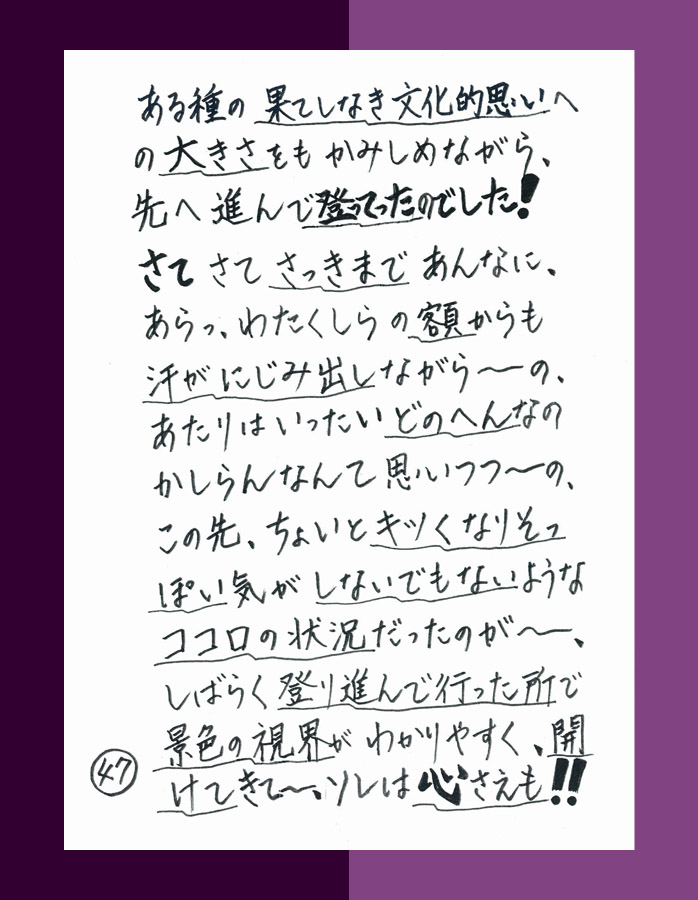 ある種の果てしなき文化的思いへ
の大きさをもかみしめながら、
先へ進んで登ってったのでした!
さてさてさっきまであんなに、
あらっ、わたくしらの額からも
汗がにじみ出しながら〜の、
あたりはいったいどのへんなの
かしらんなんて思いつつ〜の、
この先、ちょいとキツくなりそっ
ぽい気がしないでもないような
ココロの状況だったのが〜、
しばらく登り進んで行った所で
景色の視界がわかりやすく、開
けてきて〜、ソレは心さえも!!
47